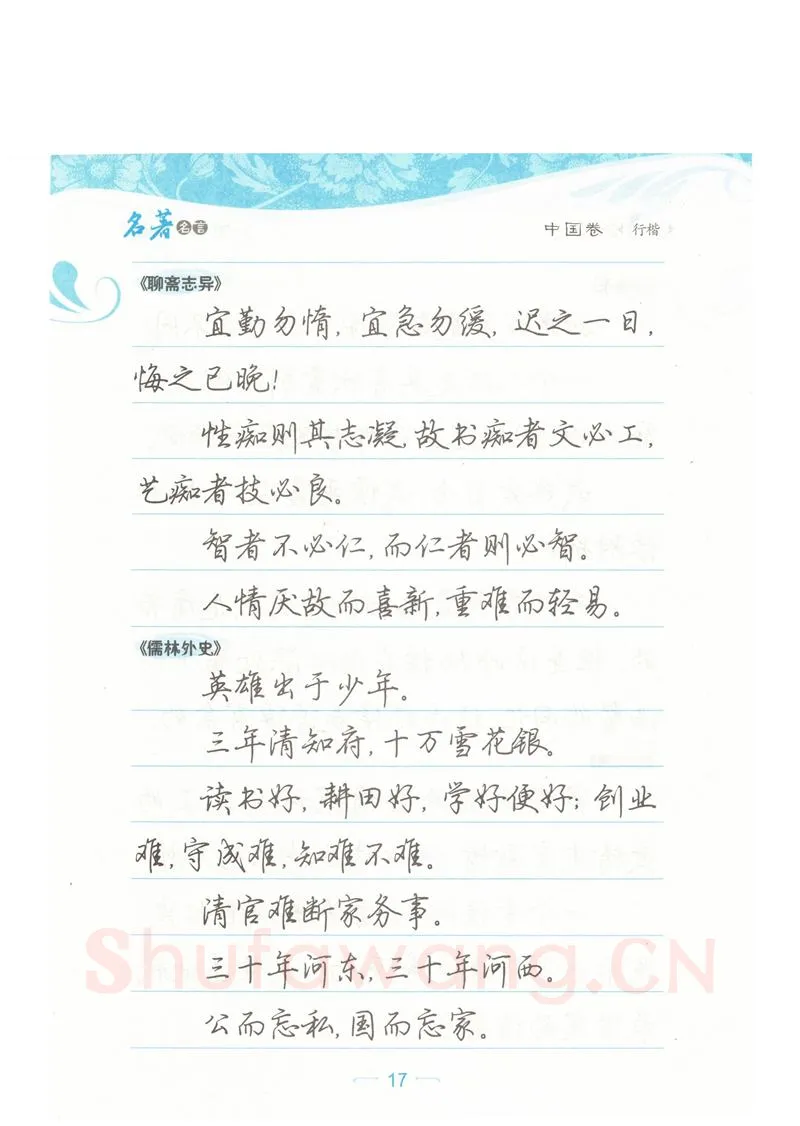 名著名言
中国卷 行楷
《聊斋志异》
宜勤勿惰，宜急勿缓，迟之一日，
悔之已晚！
性痴则其志凝，故书痴者文必工，
艺痴者技必良。
智者不必仁，而仁者则必智。
人情厌故而喜新，重难而轻易。
《儒林外史》
英雄出于少年。
三年清知府，十万雪花银。
读书好，耕田好，学好便好；创业
难，守成难，知难不难。
清官难断家务事。
三十年河东，三十年河西。
公而忘私，国而忘家。
Shufawang.CN
17